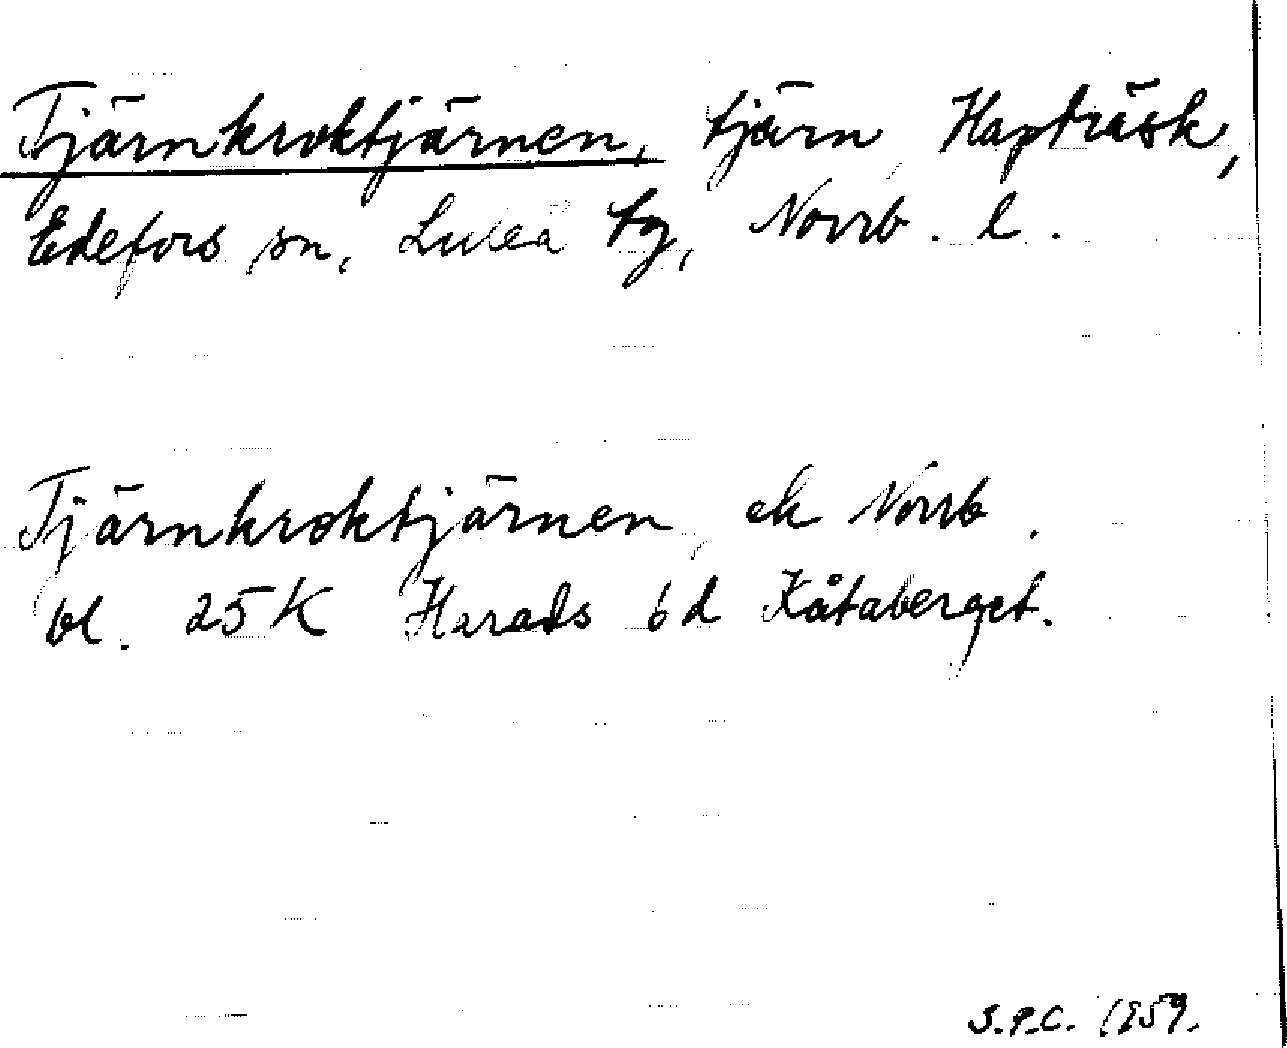 Tjärnkroktjärnen, tjärn, Hapträsk,
Edefors sn, Luleå tg, Norrb. l.
Tjärnkroktjärnen, ek Norrb.
bl. 25K Harads 6d Kåtaberget.
S.P.C. 1959.